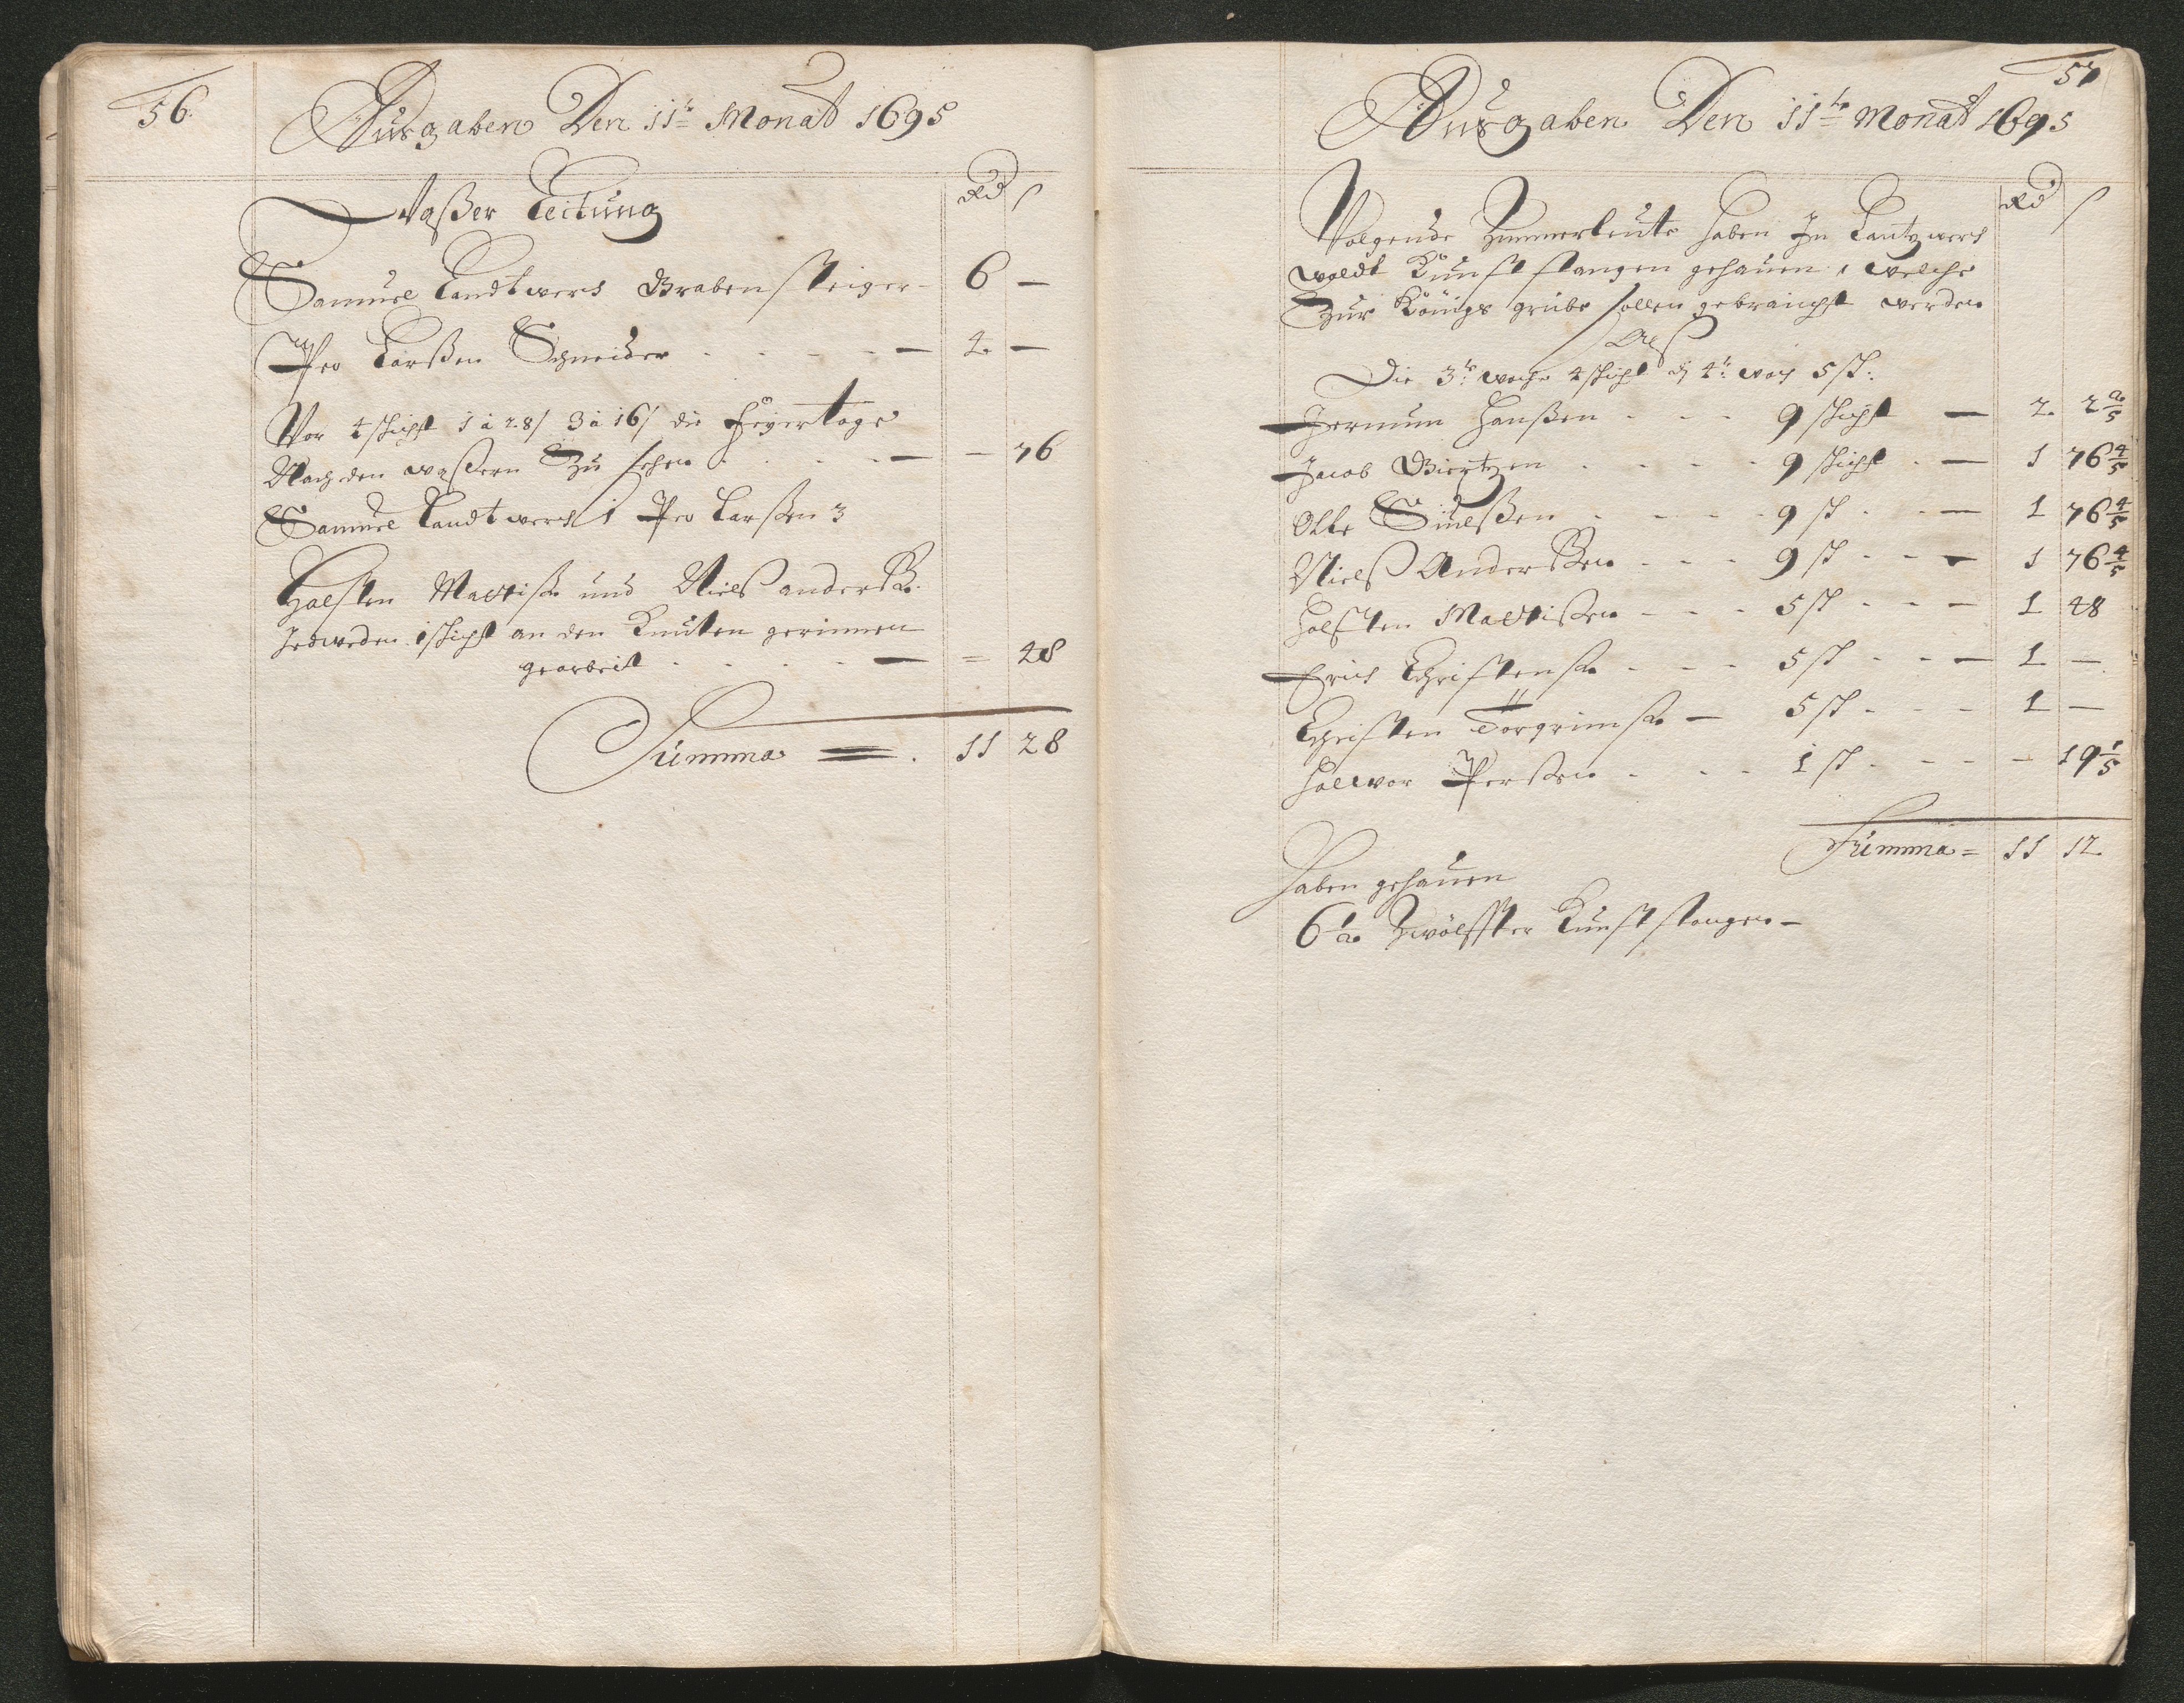 56.
Ausgaben Den 11te Monat 1695
Rd ß
Waßer Leitung
Samuel Landtwers Grabensteiger - 6 -
Peo Larßen Schneider - - - - - 4 -
Vor 4 schicht 1 à 28ß 3 à 16ß die Feyertage
Nach den waßern Zu sehen . . . - - 76
Samuel Landtwers 1 Peo Larßen 3
Halsten Mattiß. und Nielß anderß.
Jedweden 1 schicht an den Knuten gerinnen
gearbeit . . . . - = 48
Summa = . 11 28
57
Ausgaben Den 11te Monat 1695
Rd ß
Volgende Zimmerleute haben In Lantzwers
waldt Kunst stangen gehauen, welche
Zur Königs grube sollen gebraucht werden
Alß
Die 3te woche 4 schicht die 4te woch 5 sch:
Hermun Hanßen - - - 9 schicht - 2 2 2/5
Jacob Giertzen . . . . 9 schicht . - 1 76 4/5
Olle Siulßen - - - - 9 sch - - - 1 76 4/5
Nielß Anderßen - - - 9 sch - - - 1 76 4/5
Halsten Mattißen - - - 5 sch - - - 1 48
Erich Christenß. - - - 5 sch - - - 1 -
Christen Torgrimß. - 5 sch - - - 1 -
Halwor Perßen - - - 1 sch - - - - 19 1/5
Summa = 11 12
Haben gehauen
6 1/2 Zwölffter Kunst stangen -